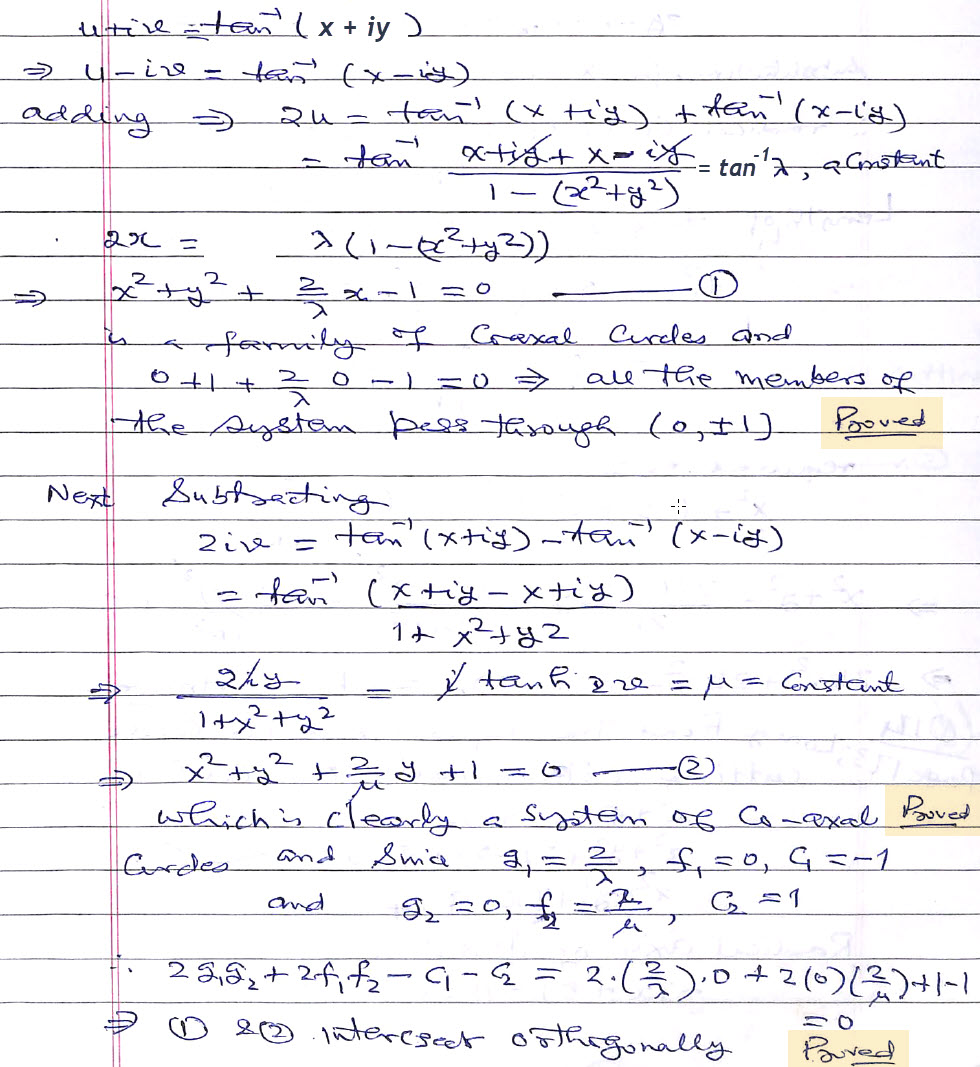 u+iv = tan⁻¹ ( x + iy )
⇒ u – iv = tan⁻¹ (x – iy)
adding ⇒ 2u = tan⁻¹ (x + iy) + tan⁻¹ (x – iy)
= tan⁻¹ (x + iy + x – iy) / (1 – (x² + y²)) = tan⁻¹ λ, a Constant
2x = λ (1 – (x² + y²))
⇒ x² + y² + 2/λ x – 1 = 0 ——— ①
is a family of Coaxal Circles and
0 + 1 + 2/λ 0 – 1 = 0 ⇒ all the members of
the system pass through (0, ±1) Proved
Next Subtracting
2iv = tan⁻¹ (x+iy) – tan⁻¹ (x–iy)
= tan⁻¹ (x + iy – x + iy) / 1 + x² + y2
⇒ 2iy / 1+x²+y² = i tanh 2v = μ = Constant
⇒ x² + y² + 2/μ y + 1 = 0 ——— ②
which is clearly a system of Co-axal Proved
Circles and Since g₁ = 2/λ, f₁ = 0, C₁ = –1
and g₂ = 0, f₂ = 2/μ, C₂ = 1
∴ 2g₁g₂ + 2f₁f₂ – C₁ – C₂ = 2·(2/λ)·0 + 2(0)(2/μ) + 1 – 1
= 0
⇒ ① & ② intersect orthogonally Proved